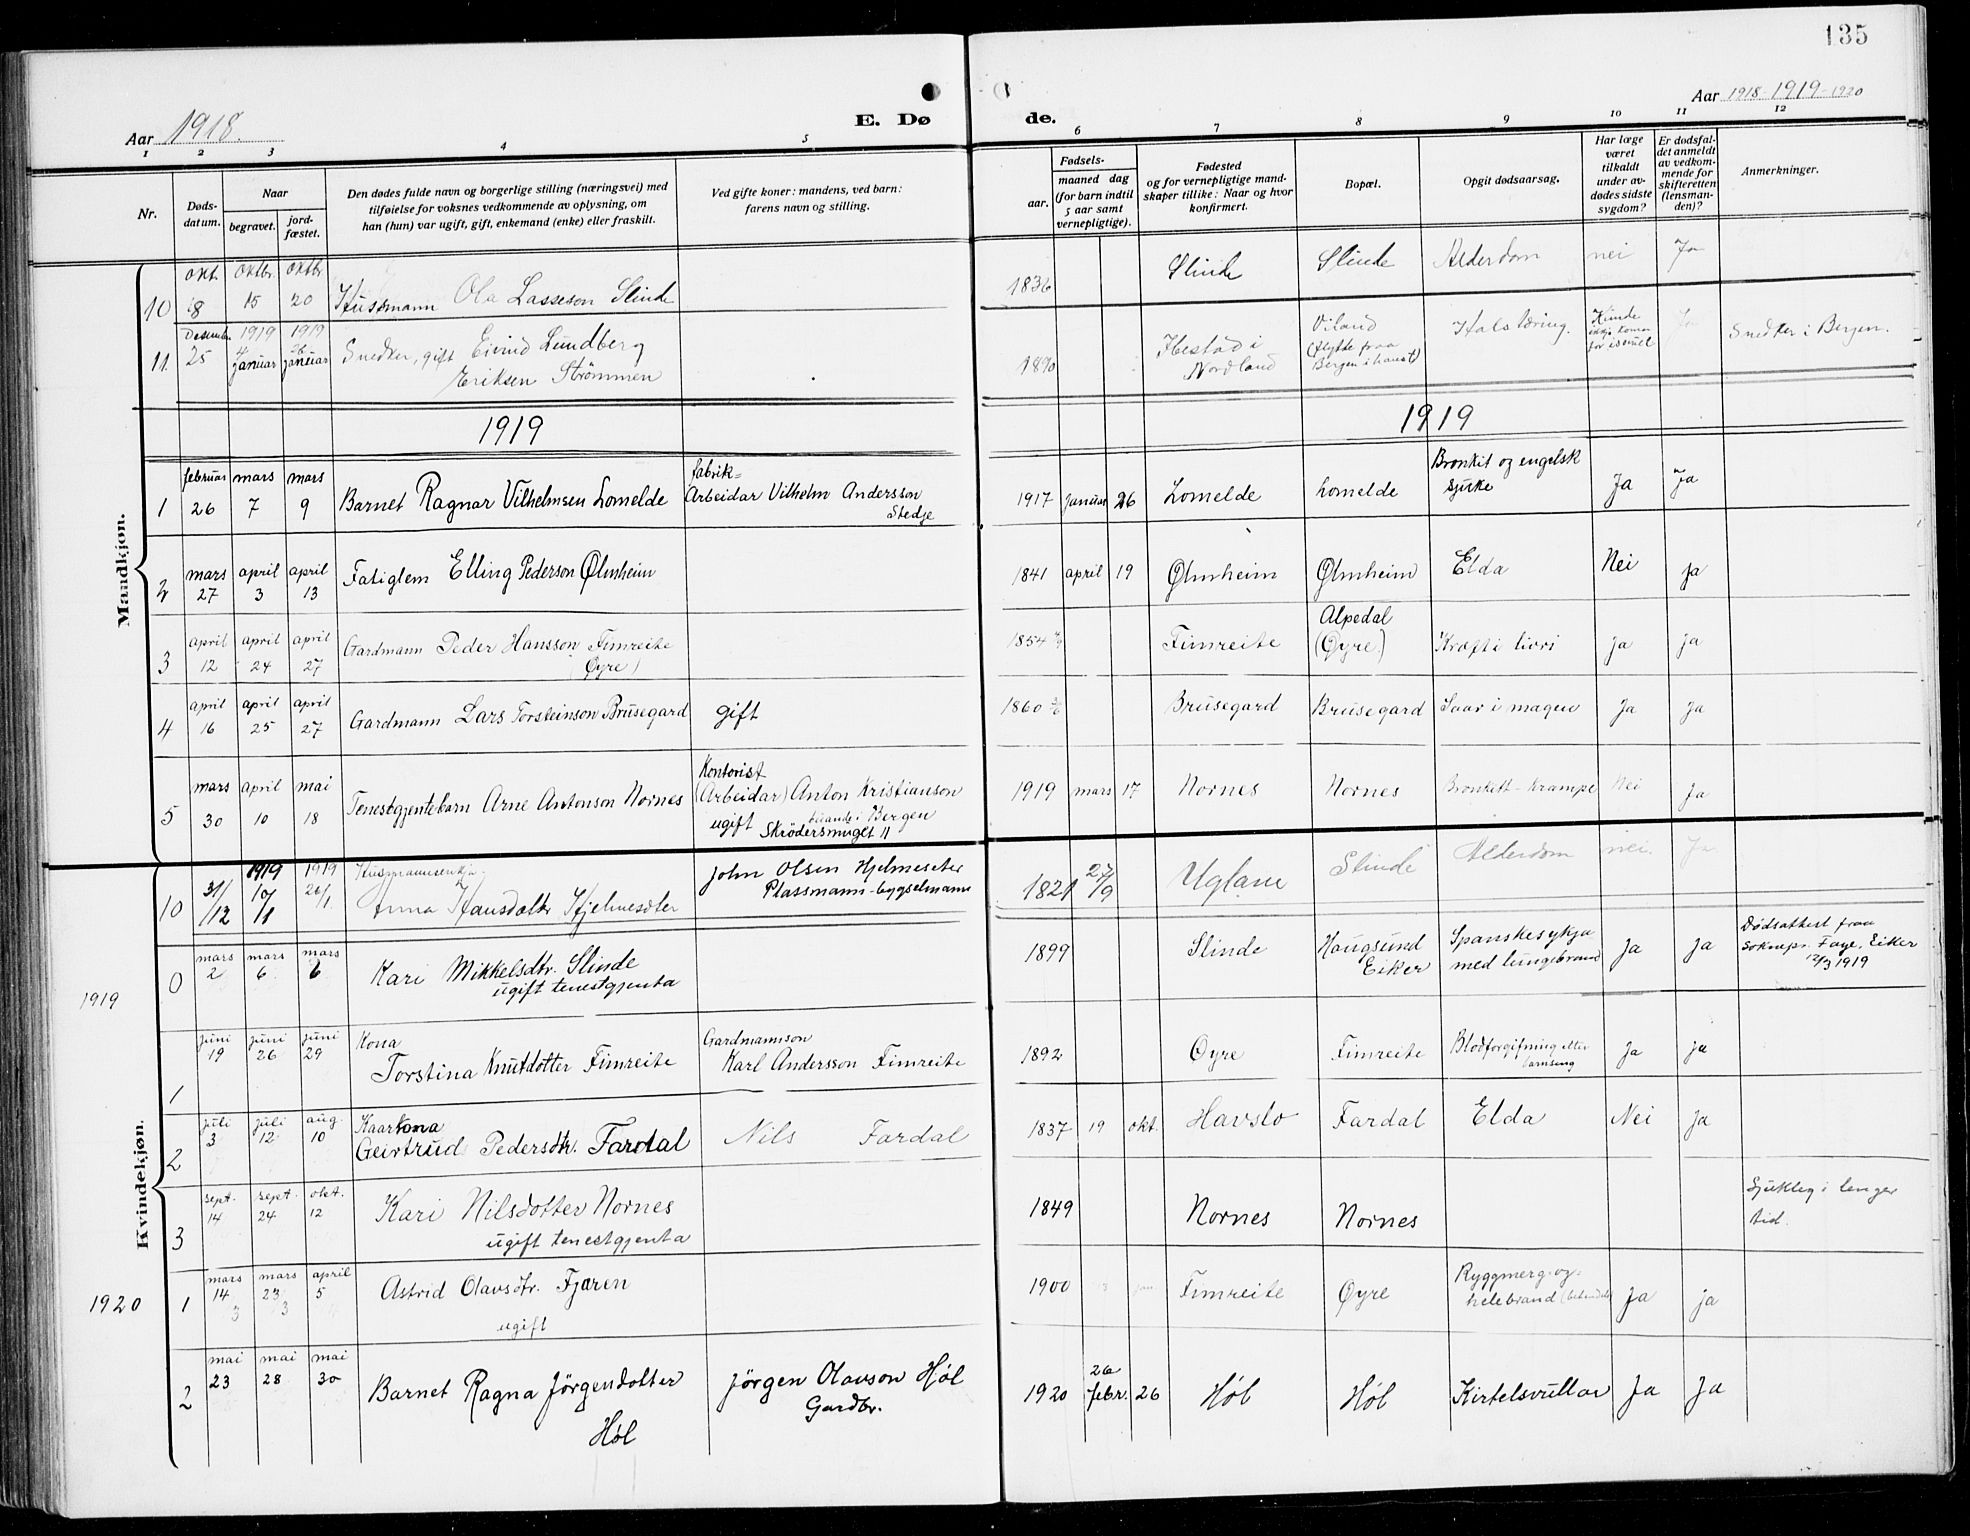 135
Aar 1918.
E. Dø
de.
Aar 1918-1919-1920
1 2 3 4 5 6 7 8 9 10 11 12
Nr.
Døds-
datum.
Naar
begravet.
jord-
fæstet.
Den dødes fulde navn og borgerlige stilling (næringsvei) med
tilføielse for voksnes vedkommende av oplysning, om
han (hun) var ugift, gift, enkemand (enke) eller fraskilt.
Ved gifte koner: mandens, ved barn:
farens navn og stilling.
Fødsels-
aar.
maaned dag
(for barn indtil
5 aar samt
vernepligtige).
Fødested
og for vernepligtige mand-
skaper tillike: Naar og hvor
konfirmert.
Bopæl.
Opgit dødsaarsag.
Har læge
været
tilkaldt
under av-
dødes sidste
sygdom?
Er dødsfal-
det anmeldt
av vedkom-
mende for
skifteretten
(lensman-
den)?
Anmerkninger.
Mandkjøn.
10 okt. 8 oktbr. 15 oktbr 20 Husmann Ola Lasseson Slinde 1836 Slinde Slinde Alderdom nei Ja
11. Desember 25 1919 4 januar 1919 26 januar Snedker, gift Eivind Lundberg
Eriksen Strömmen
1890 Ibestad i
Nordland
Viland
(flytte fraa
Bergen i haust)
Halstæring.
Kunde
ikkje koma
for isen
Ja Snedker i Bergen.
1919
1919
1 februar 26 mars 7 mars 9 Barnet Ragnar Vilhelmsen Lomelde
fabrik=
Arbeidar Vilhelm Andersson
Stedje
1917 januar 26 Lomelde Lomelde
Bronkit og engelsk
sjuke
Ja Ja
2 mars 27 april 3 april 13 Fatiglem Elling Pederson Ølmheim 1841 april 19 Ølmheim Ølmheim Elda Nei Ja
3 april 12 april 24 april 27 Gardmann Peder Hansson Fimreite
(Øyre)
1854 Fimreite
Alpedal
(Øyre)
Kræft i livri Ja Ja
4 april 16 april 25 april 27 Gardmann Lars Torsteinson Brusegard gift 1860 Brusegard Brusegard Saar i magen Ja Ja
5 mars 30 april 10 mai 18 Tenestgjentebarn Arne Antonson Nornes
Kontorist
(Arbeidar) Anton Kristianson
ugift buande i Bergen
Skrödersmuget 11
1919 mars 17 Nornes Nornes Bronkitt-Krampe Nei Ja
Kvindekjøn.
10 31/12 1919 10/1 1919 26/1.
Husmannsenkja
Anna Hansdotr Hjelmesæter
John Olsen Hjelmeseter
Plassmann-bygselmann
1821 27/9 Uglane Slinde Alderdom nei Ja
1919
0 mars 2 mars 6 mars 6 Kari Mikkelsdtr. Slinde
ugift tenestgjenta
1899 Slinde
Haugsund
Eiker
Spanskesykja
med lungebrand
Ja Ja
Dødsattest fraa
Soknepr. Faye, Eiker
12/3 1919
1 juni 19 juni 26 juni 29
Kona
Torstina Knutdotter Fimreite
Gardmannson
Karl Andersson Fimreite
1892 Øyre Fimreite
Blodforgifning etter
barnseng
Ja ja
2 juli 3 juli 12 aug. 10
Kaarkona
Geirtrud Pedersdtr. Fardal
Nils Fardal
1837 19 okt. Havslo Fardal Elda Nei Ja
3 sept. 14 sept. 24 okt. 12 Kari Nilsdotter Nornes
ugift tenestgjenta
1849 Nornes Nornes
Sjukleg i lenger
tid.
1920
1 mars 14 3 mars 23 3 april 5 Astrid Olavsdtr. Fjæren
ugift
1900 Fimreite Øyre
Ryggmerg-og-
helebrand
Ja ja
2 mai 23 mai 28 mai 30 Barnet Ragna Jörgendotter
Høl
Jörgen Olavson Høl
Gardbr.
1920 26 febr. 26 Høl Høl Kirtelsvullar Ja Ja